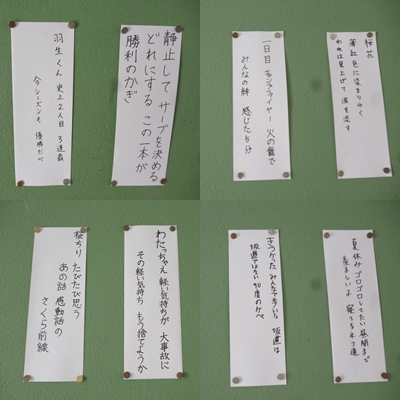 静止して サーブを決める
どれにする この一本が
勝利のかぎ
羽生くん 史上2人目 3連覇
今シーズンも 優勝だべ
桜花
薄紅色に染まりゆく
われは見上げて 涙を流す
一日目 キャンプファイヤー 火の音で
みんなの絆 感じた
わたっちゃえ 軽い気持ちが 大事故に
その軽い気持ち もう捨てようか
桜ちり たびたび思う
あの話 感動話の
さくら前線
夏休み ゴロゴロしてたい 昼間まで
羨ましいよ 寝てるネコ達
きつかった みんなで 坂道は
坂道ではない 90度のかべ